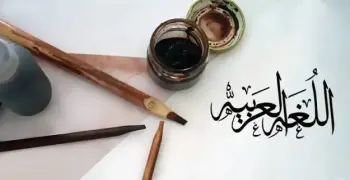 اللُّغة العربيّة